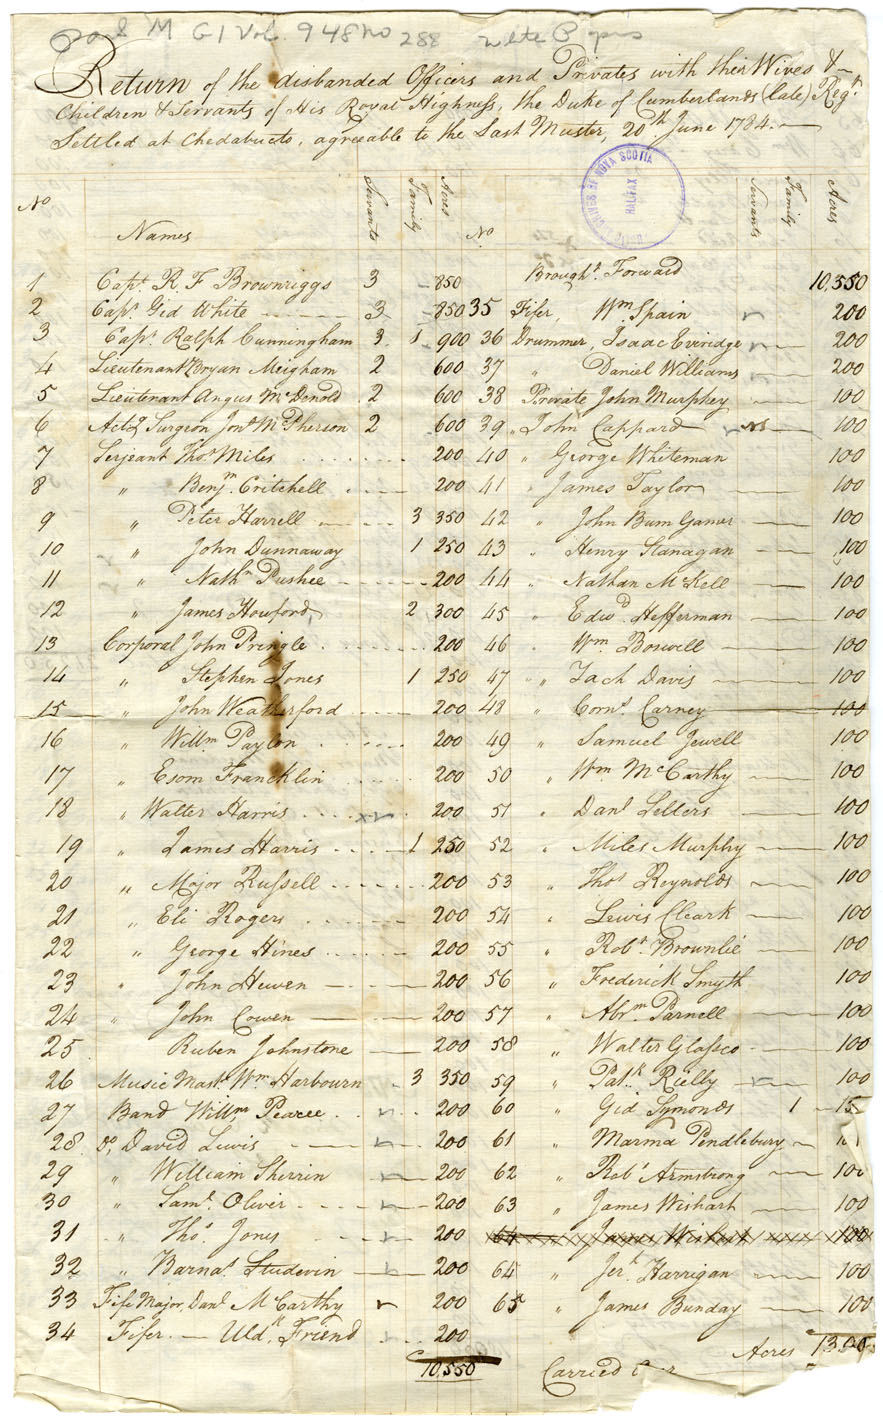 M G 1 Vol. 948 No 288 White Papers
Return of the disbanded Officers and Privates with their Wives &
Children & Servants of His Royal Highness, the Duke of Cumberlands (late) Regt
Settled at Chedabucto, agreeable to the Last Muster, 20th June 1784.
PUBLIC ARCHIVES OF NOVA SCOTIA
HALIFAX
No Names Servants Family Acres
1 Capt. R. F Brownriggs 3 850
2 Capt. Gid White 3 850
3 Capt. Ralph Cunningham 3 1 900
4 Lieutenant Bryan Meigham 2 600
5 Lieutenant Angus McDonold 2 600
6 Actg Surgeon Jon. McPherson 2 600
7 Serjeant Thos Miles 200
8 " Benjn. Critchell 200
9 " Peter Harrell 3 350
10 " John Dunnaway 1 250
11 " Nathn Pushee 200
12 " James Howford 2 300
13 Corporal John Pringle 200
14 " Stephen Jones 1 250
15 " John Weatherford 200
16 " Willm Payton 200
17 " Esom Francklin 200
18 " Walter Harris 200
19 " James Harris 1 250
20 " Major Russell 200
21 " Eli Rogers 200
22 " George Hines 200
23 " John Hewen 200
24 " John Cowen 200
25 Ruben Johnstone 200
26 Music Mastr. Wm Harbourn 3 350
27 Band Willm Pearce 200
28 Do, David Lewis 200
29 " William Sherrin 200
30 " Saml. Oliver 200
31 " Thos. Jones 200
32 " Barnas. Studevin 200
33 Fife Major, Danl McCarthy 200
34 Fifer. Uldk. Friend 200
10,550
No Servants Family Acres
Brought. Forward 10,550
35 Fifer, Wm. Spain 200
36 Drummer, Isaac Everidge 200
37 " Daniel Williams 200
38 Private John Murphey 100
39 " John Cappard NS 100
40 " George Whiteman 100
41 " James Taylor 100
42 " John Bum Gamer 100
43 " Henry Flanagan 100
44 " Nathan McKell 100
45 " Edwd. Hefferman 100
46 " Wm Boswell 100
47 " Zach Davis 100
48 " Corns. Carney 100
49 " Samuel Jewell 100
50 " Wm McCarthy 100
51 " Danl Letters 100
52 " Miles Murphy 100
53 " Thos Reynolds 100
54 " Lewis Cleark 100
55 " Robt. Brownlie 100
56 " Frederick Smyth 100
57 " Abrm. Parnell 100
58 " Walter Glassco 100
59 " Patk. Rielly 100
60 " Gid Symonds 1 15
61 " Marma Pendlebury
62 " Robt Armstrong 100
63 " James Wishart 100
64 " James Wishart 100
64 " Jerh. Harrigan 100
65 " James Bunday 100
Acres
Carried